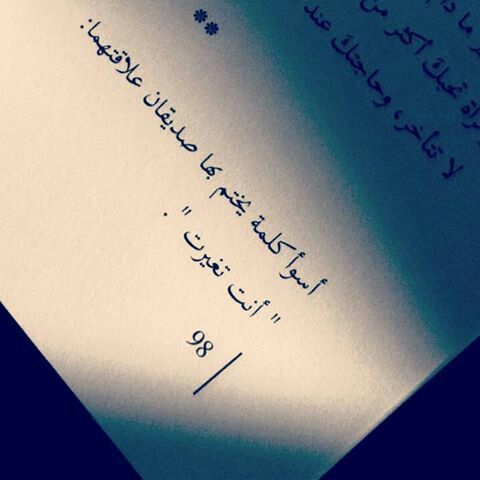 امرأة تحبك أكثر من
لا تتأخر، وحاجتك عند
**
أسوأ كلمة يختم بها صديقان علاقتهما:
" أنت تغيرت ".
98